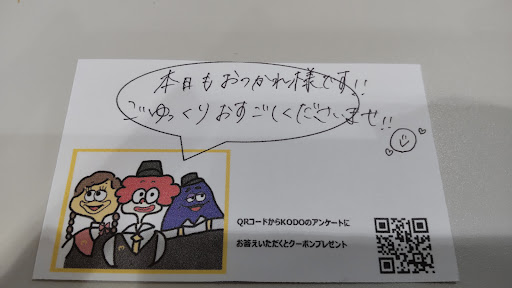 本日もおつかれ様です!!
ごゆっくりおすごしくださいませ!!
QRコードからKODOのアンケートに
お答えいただくとクーポンプレゼント